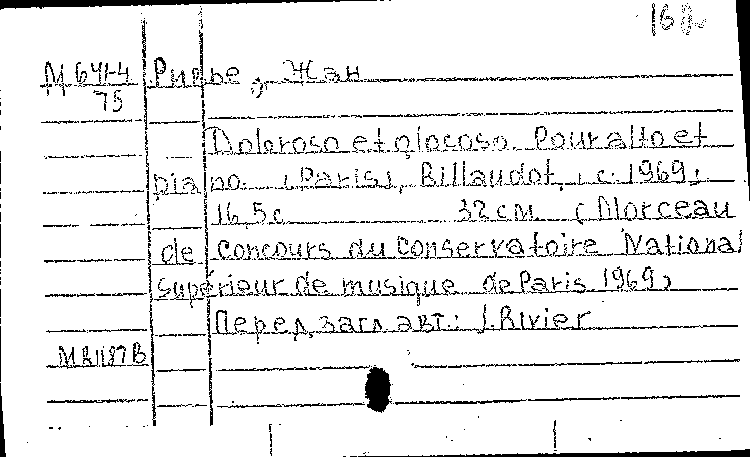 16
М 641-4
75
Ривье, Жан
Doloroso et giocoso. Pour alto et
piano. (Paris), Billaudot, c. 1969,
16,5 с. 32 см (Morceau
de concours du Conservatoire National
supérieur de musique de Paris 1969)
Перед загл авт.: J. Rivier